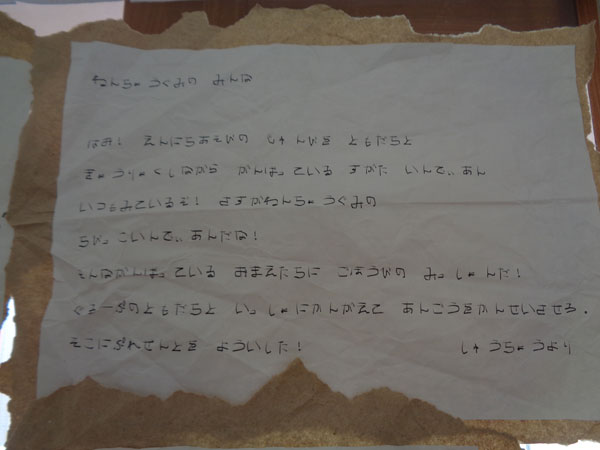 ねんちゅうぐみの みんな
はあ! えんにちあそびの じゅんびを ともだちと
きょうりょくしながら がんばっている すがた いんでぃあん
いつもみているぞ! さすがねんちゅうぐみの
ちびっこいんでぃあんだな!
そんながんばっている おまえたちに ごほうびの みっしょんだ!
ぐるーぷのともだちと いっしょにかんがえて あんごうをかんせいさせろ.
そこにぷれぜんとを よういした! しゅうちょうより